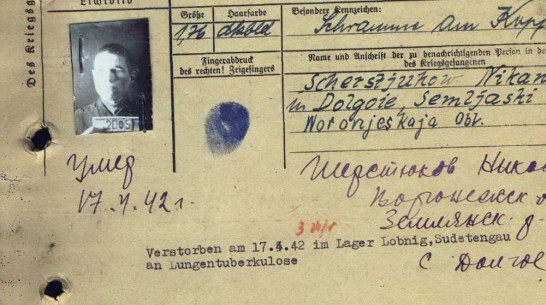 Lichtbild
Größe
Haarfarbe
Besondere Kennzeichen:
1,76
Schramme am Kopf
Des Kriegsg
Fingerabdruck
des rechten! Zeigefingers
Name und Anschrift der zu benachrichtigenden Person in de
des Kriegsgefangenen
Scherstjukow Nikan
in Dolgoie Semljaski
Woronjeskaja Obl.
Умер
17.4.42 г.
Шерстюков Ник
Воронежск о
Землянск. р-
с Долгое
Verstorben am 17.4.42 im Lager Lobnig,Sudetengau
an Lungentuberkulose